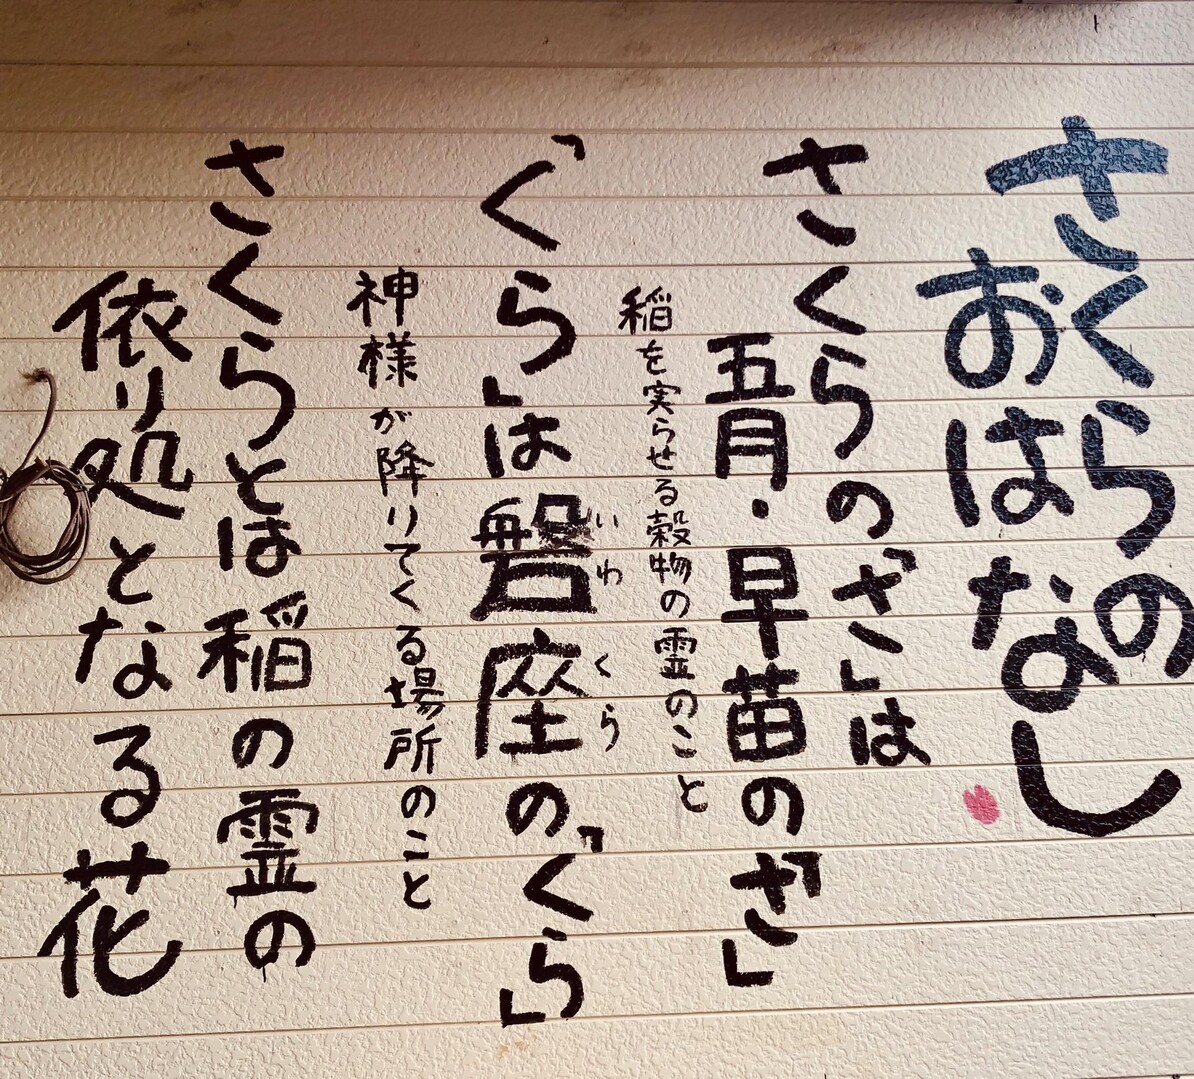 さくらの
おはなし
さくらの「さ」は
五月・早苗の「さ」
稲を実らせる穀物の霊のこと
いわくら
「くら」は磐座の「くら」
神様が降りてくる場所のこと
さくらとは稲の霊の
依り処となる花